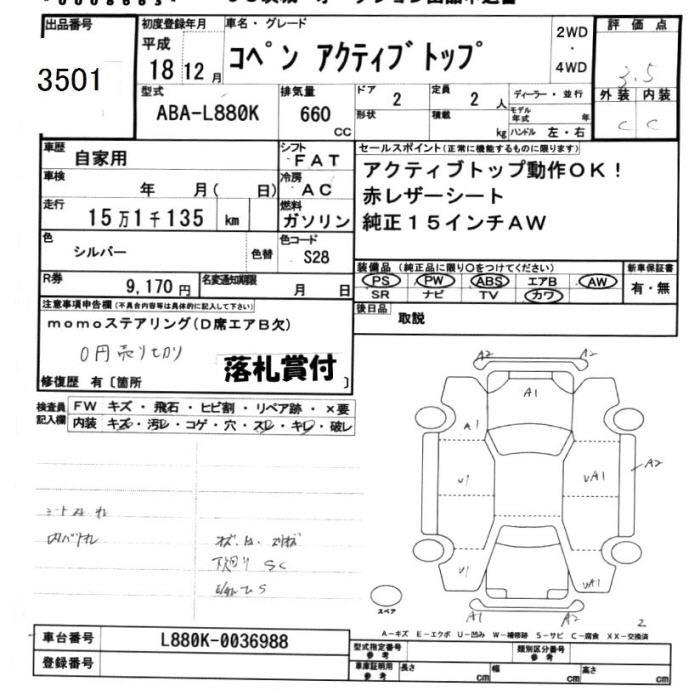 出品番号
3501
初度登録年月
平成
18 12月
車名・グレード
コペン アクティブトップ
2WD
・
4WD
評価点
3.5
外装 内装
C C
型式
ABA-L880K
排気量
660
CC
ドア
2
形状
定員
2
人
積載
kg
ディーラー・並行
モデル年式
年
ハンドル 左・右
車歴
自家用
車検
年 月( 日)
走行
15万1千135 km
シフト
FAT
冷房
AC
燃料
ガソリン
セールスポイント(正常に機能するものに限ります)
アクティブトップ動作OK!
赤レザーシート
純正15インチAW
色
シルバー
色替
色コード
S28
R券
9,170円
名変通知期限
月 日
装備品 (純正品に限り○をつけてください)
PS PW ABS エアB AW
SR ナビ TV カワ
新車保証書
有・無
後日品
取説
注意事項申告欄(不具合内容等は具体的に記入して下さい)
momoステアリング(D席エアB欠)
0円売り切り
落札賞付
修復歴 有〔箇所 〕
検査員記入欄
FW キズ・飛石・ヒビ割・リペア跡・×要
内装 キズ・汚レ・コゲ・穴・スレ・キレ・破レ
A2
A2
A1
A1
U1
UA1
A2
U1
UA1
A1
A2
スペア
2
下廻りSC
A-キズ E-エクボ U-凹み W-補修跡 S-サビ C-腐食 XX-交換済
車台番号
L880K-0036988
登録番号
型式指定番号
参考
類別区分番号
参考
車庫証明用
参考
長さ
cm
幅
cm
高さ
cm